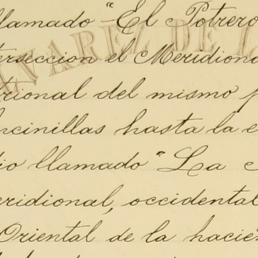 llamado "El Potrero
tersección el Meridiona
rional del mismo p
ncinillas hasta la e
io llamado "La
ridional, occidental
Oriental de la hacie